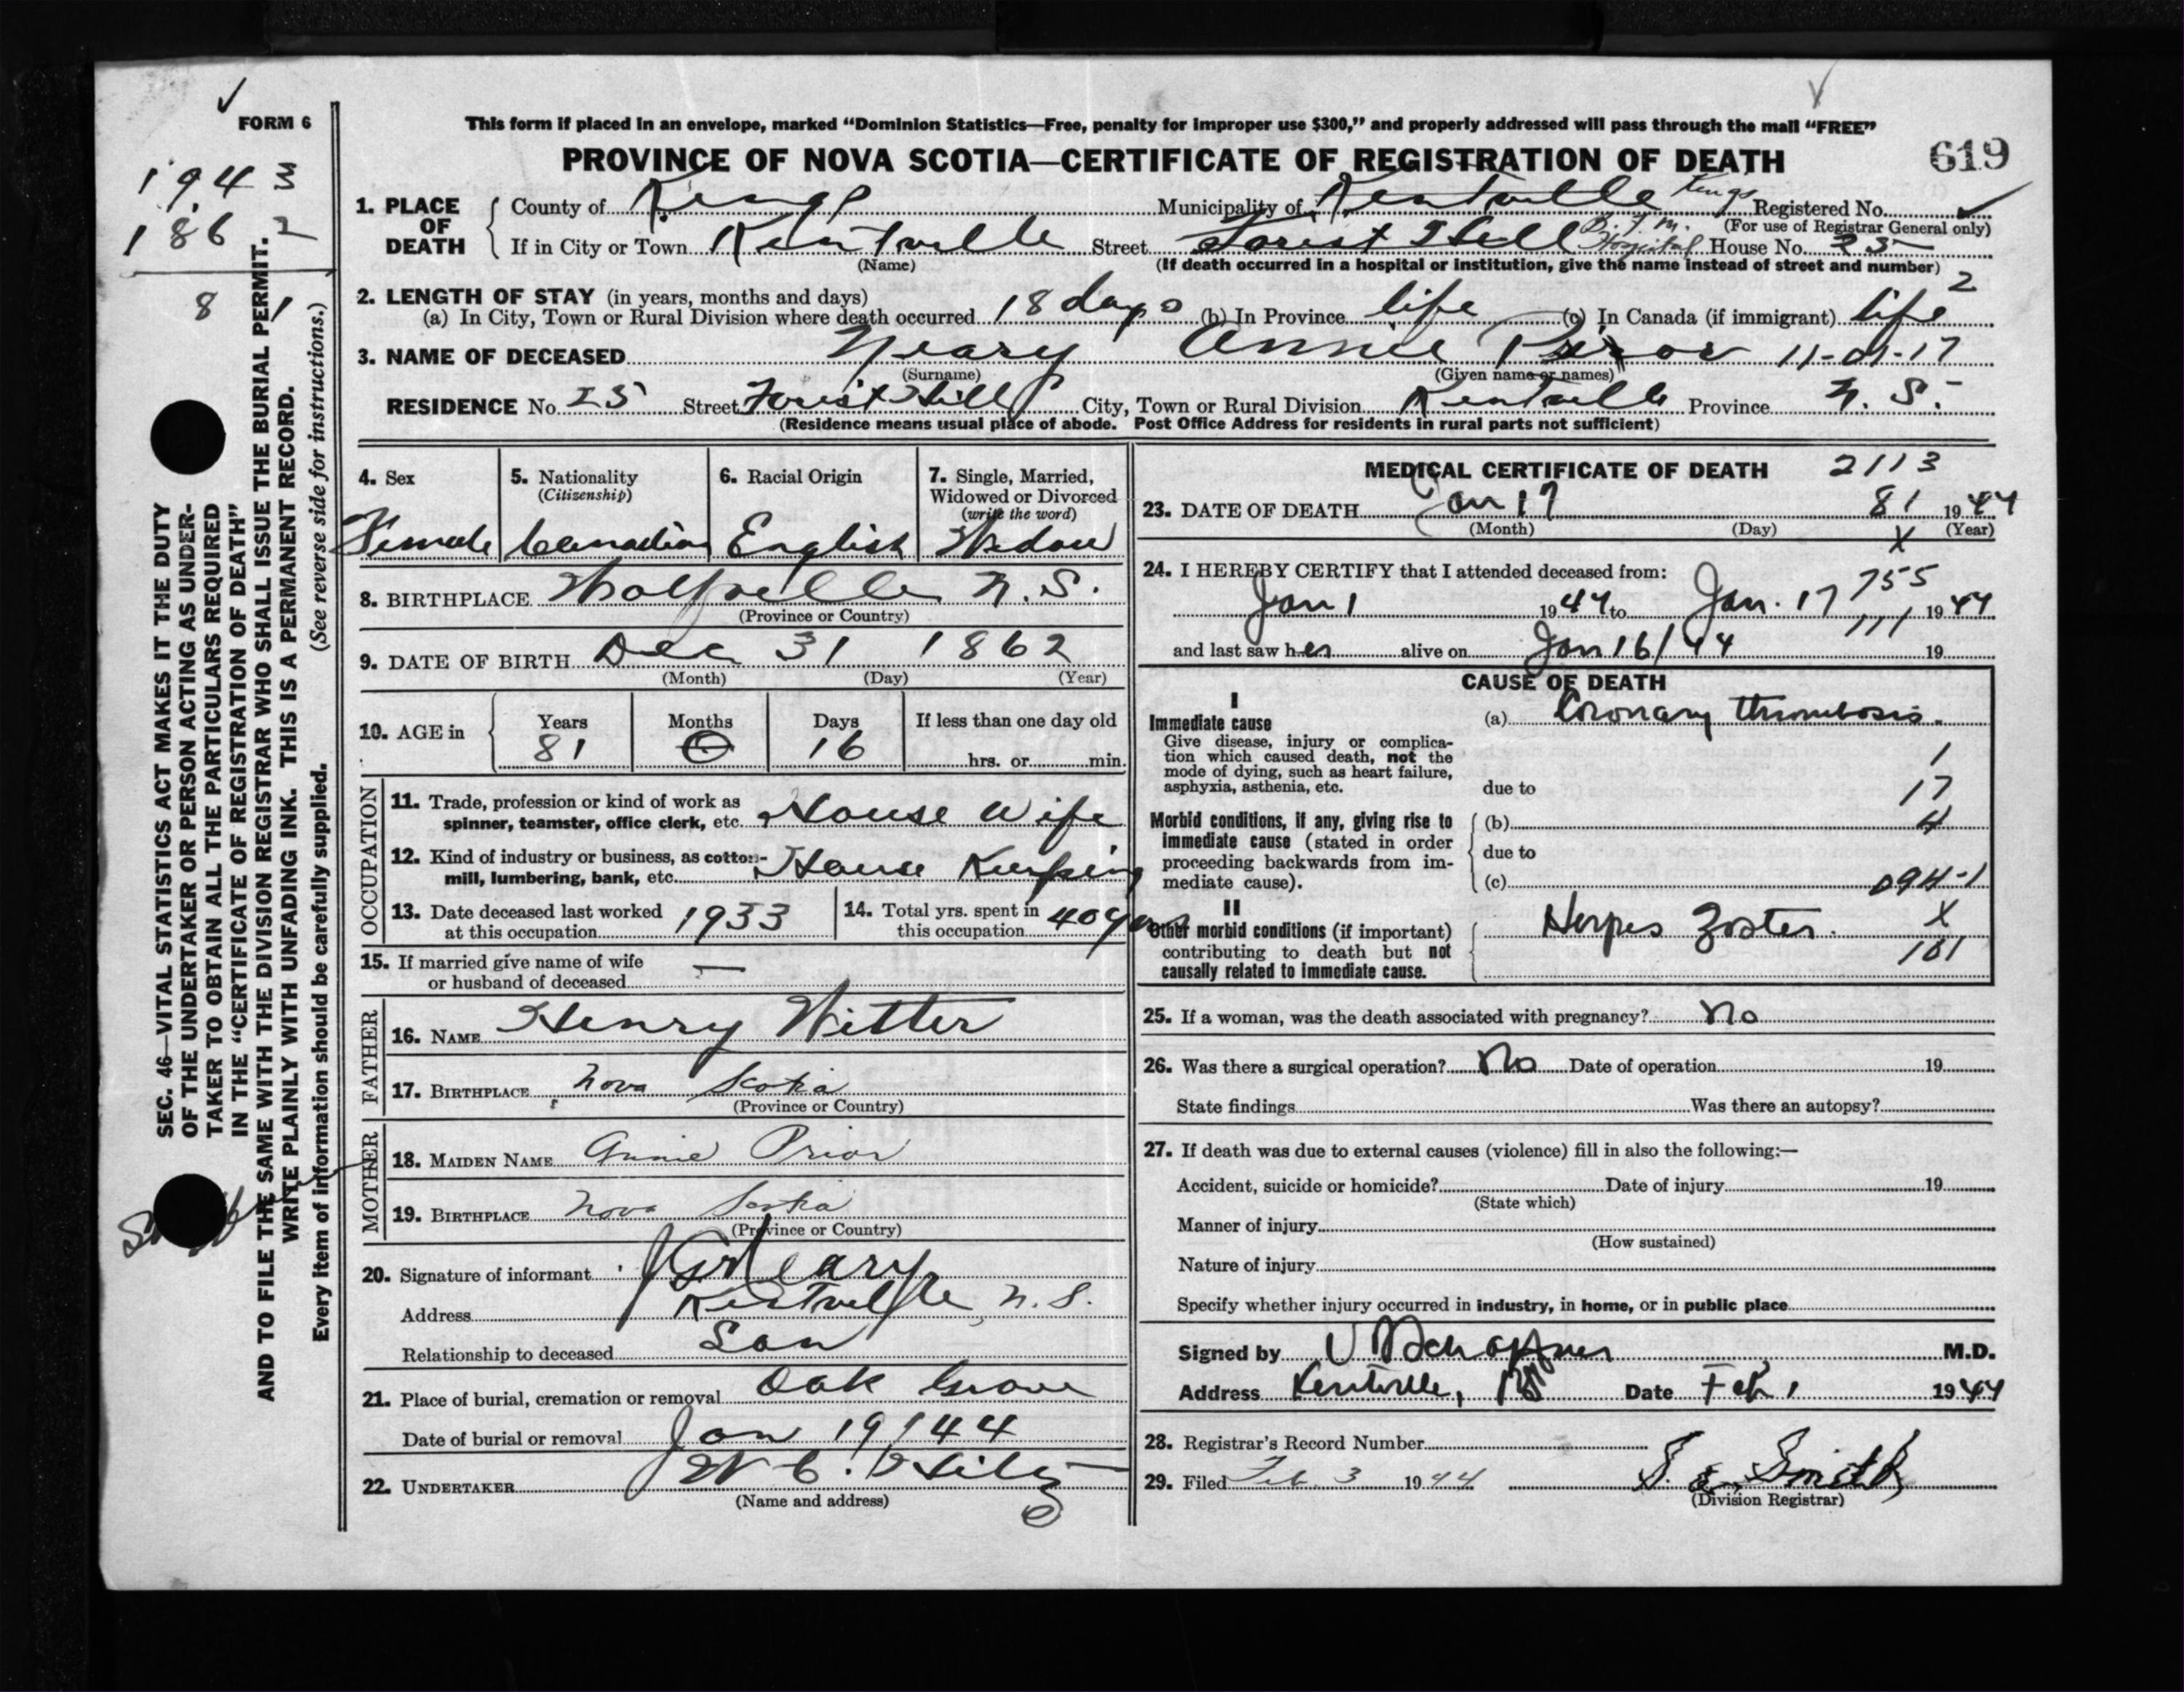 FORM 6
This form if placed in an envelope, marked “Dominion Statistics—Free, penalty for improper use $300,” and properly addressed will pass through the mail “FREE”
PROVINCE OF NOVA SCOTIA—CERTIFICATE OF REGISTRATION OF DEATH
619
1943
1862
8 1
1. PLACE OF DEATH
County of Kings Municipality of Kentville Kings Registered No.
(For use of Registrar General only)
If in City or Town Kentville Street Forist Hill B.F.M. Hospital House No. 25
(Name) (If death occurred in a hospital or institution, give the name instead of street and number)
2. LENGTH OF STAY (in years, months and days)
(a) In City, Town or Rural Division where death occurred 18 days (b) In Province life (c) In Canada (if immigrant) life 2
3. NAME OF DECEASED Neary Annie Prior 11-01-17
(Surname) (Given name or names)
RESIDENCE No. 25 Street Forist Hill City, Town or Rural Division Kentville Province N. S.
(Residence means usual place of abode. Post Office Address for residents in rural parts not sufficient)
4. Sex 5. Nationality (Citizenship) 6. Racial Origin 7. Single, Married, Widowed or Divorced (write the word)
Female Canadian English Widow
8. BIRTHPLACE Wolfville N.S.
(Province or Country)
9. DATE OF BIRTH Dec 31 1862
(Month) (Day) (Year)
10. AGE in Years Months Days If less than one day old
81 0 16 hrs. or min.
OCCUPATION
11. Trade, profession or kind of work as spinner, teamster, office clerk, etc. House Wife
12. Kind of industry or business, as cotton-mill, lumbering, bank, etc. House Keeping
13. Date deceased last worked at this occupation 1933
14. Total yrs. spent in this occupation 40 years
15. If married give name of wife or husband of deceased —
FATHER
16. NAME Henry Witter
17. BIRTHPLACE Nova Scotia
(Province or Country)
MOTHER
18. MAIDEN NAME Annie Prior
19. BIRTHPLACE Nova Scotia
(Province or Country)
20. Signature of informant J G Neary
Address Kentville, N.S.
Relationship to deceased Son
21. Place of burial, cremation or removal Oak Grove
Date of burial or removal Jan 19/44
22. UNDERTAKER W C. Hiltz
(Name and address)
MEDICAL CERTIFICATE OF DEATH 2113
23. DATE OF DEATH Jan 17 81 1944
(Month) (Day) X (Year)
24. I HEREBY CERTIFY that I attended deceased from:
755
Jan 1 1944 to Jan. 17 1944
111
and last saw her alive on Jan 16/44 19
CAUSE OF DEATH
I
Immediate cause (a) Coronary thrombosis.
Give disease, injury or complication which caused death, not the mode of dying, such as heart failure, asphyxia, asthenia, etc.
1
due to 17
Morbid conditions, if any, giving rise to immediate cause (stated in order proceeding backwards from immediate cause).
(b) 4
due to
(c) 094-1
II
Other morbid conditions (if important) contributing to death but not causally related to immediate cause.
Herpes Zoster. X
101
25. If a woman, was the death associated with pregnancy? No
26. Was there a surgical operation? No Date of operation 19
State findings Was there an autopsy?
27. If death was due to external causes (violence) fill in also the following:—
Accident, suicide or homicide? Date of injury 19
(State which)
Manner of injury
(How sustained)
Nature of injury
Specify whether injury occurred in industry, in home, or in public place
Signed by V Schaffner M.D.
Address Kentville, NS Date Feb 1 1944
28. Registrar's Record Number
29. Filed Feb. 3 1944 S. E. Smith
(Division Registrar)
SEC. 46—VITAL STATISTICS ACT MAKES IT THE DUTY
OF THE UNDERTAKER OR PERSON ACTING AS UNDER-
TAKER TO OBTAIN ALL THE PARTICULARS REQUIRED
IN THE “CERTIFICATE OF REGISTRATION OF DEATH”
AND TO FILE THE SAME WITH THE DIVISION REGISTRAR WHO SHALL ISSUE THE BURIAL PERMIT.
WRITE PLAINLY WITH UNFADING INK. THIS IS A PERMANENT RECORD.
Every item of information should be carefully supplied. (See reverse side for instructions.)